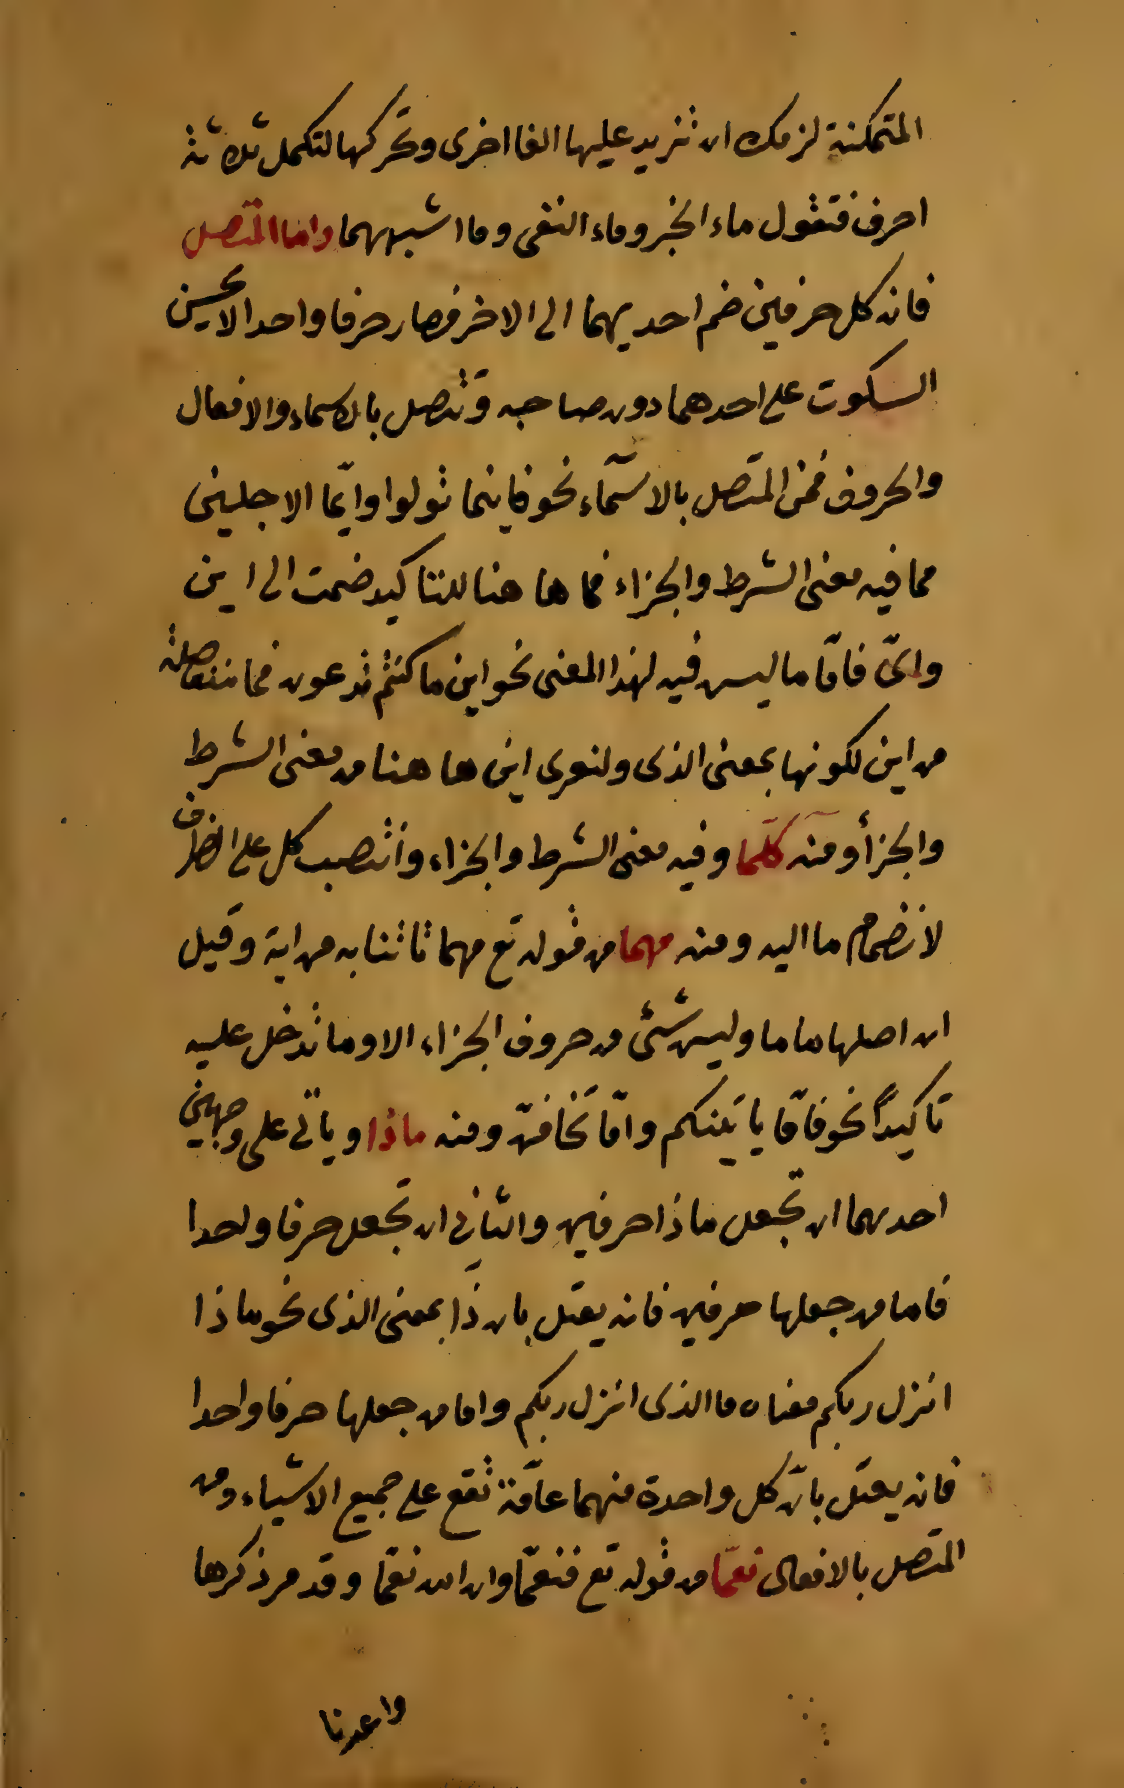 المتمكنة لزمك ان تزيد عليها الفا اخرى وتحركها لتكمل ثلاثة
احرف فتقول ماء الخبر وماء النفى وما اشبههما واما المتصل
فانه كل حرفين ضم احديهما الى الاخر فصار حرفا واحدا لا يحسن
السكوت على احدهما دون صاحبه وتتصل بالاسماء والافعال
والحروف فمن المتصل بالاسمآء نحو فاينما تولوا وايّما الاجلين
مما فيه معنى الشرط والجزاء فما ها هنا للتاكيد ضمت الى اين
واىّ فامّا ما ليس فيه لهذا المعنى نحو اين ما كنتم تدعون فما منفصلة
من اين لكونها بمعنى الذى ولتعرى اين ها هنا من معنى الشرط
والجزأ ومنه كلّما وفيه معنى الشرط والجزاء وانتصب كل على الظرف
لانضمام ما اليه ومنه مهما من قوله تع مهما تاتنا به من اية وقيل
ان اصلها ماما وليس شئ من حروف الجزاء الا وما تدخل عليه
تاكيدًا نحو فامّا ياتينكم وامّا تخافنّ ومنه ماذا وياتى على وجهين
احديهما ان تجعل ماذا حرفين والثانى ان تجعل حرفا واحدا
فاما من جعلها حرفين فانه يعتل بان ذا بمعنى الذى نحو ماذا
انزل ربكم معناه ما الذى انزل ربكم واما من جعلها حرفا واحدا
فانه يعتل بانّ كل واحدة منهما عامّة تقع على جميع الاشياء ومن
المتصل بالافعال نعمّا من قوله تع فنعمّا وان الله نعمّا وقد مر ذكرها
واعدنا